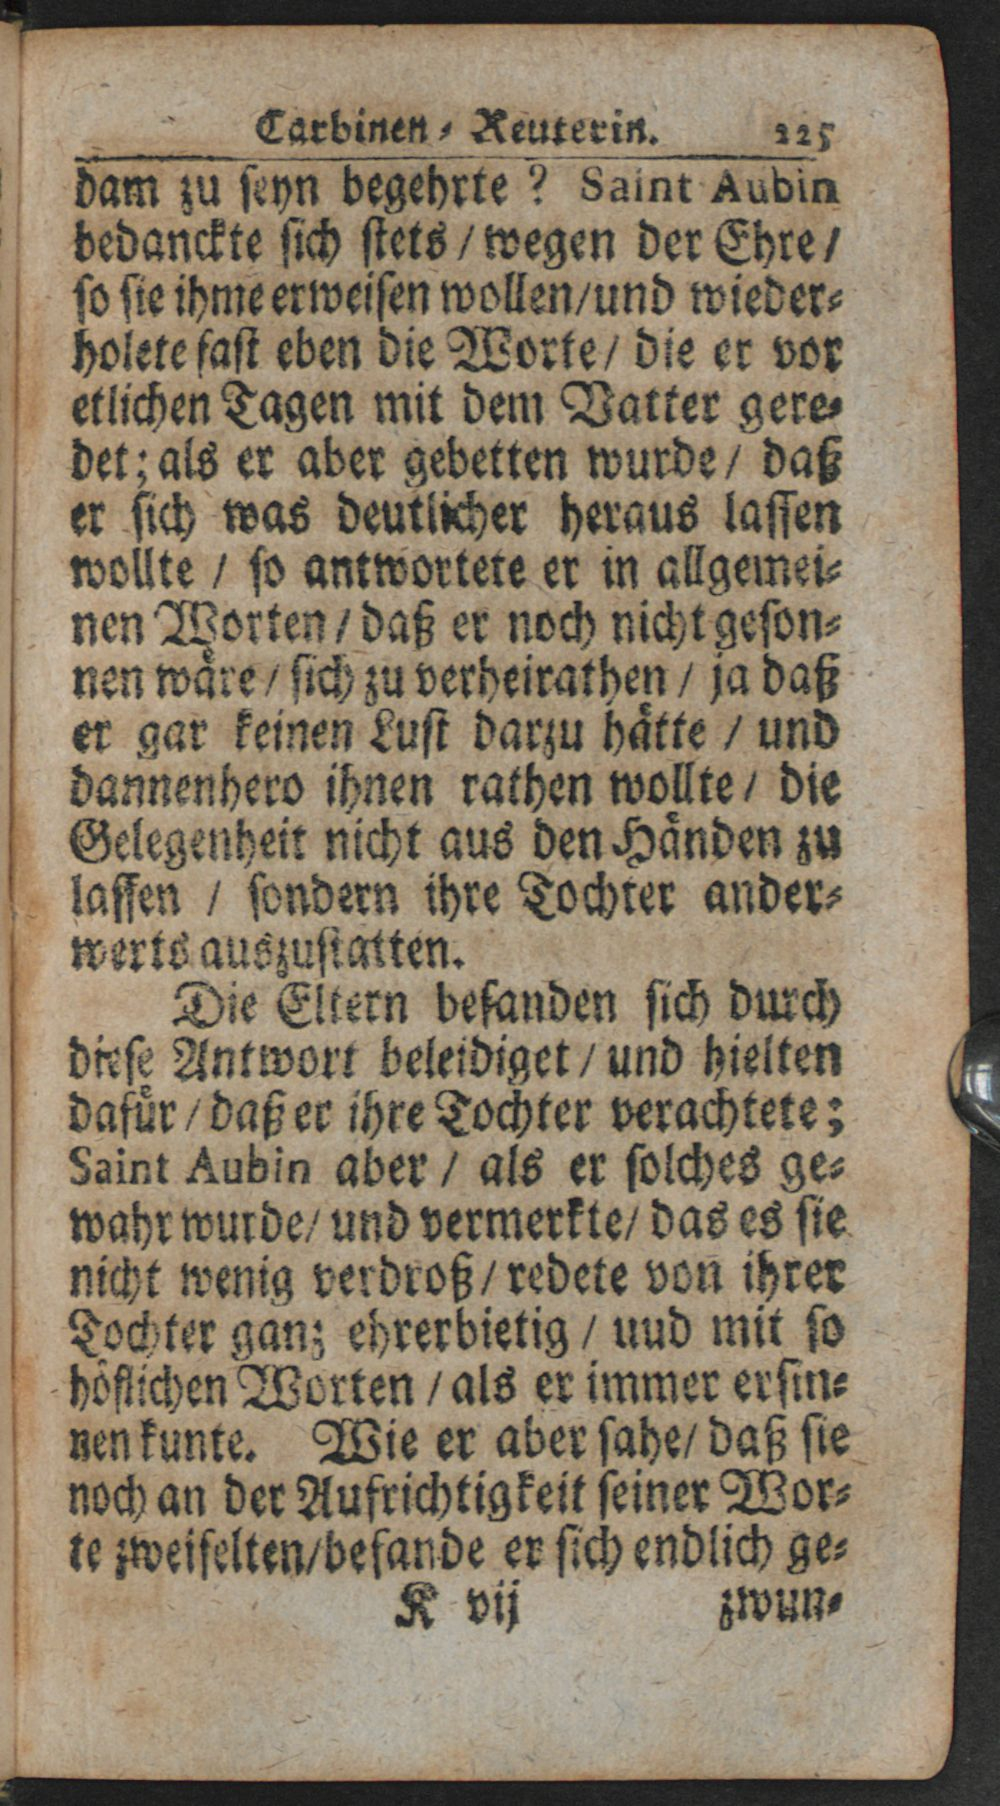 Carbinen-Reuterin. 225
dam zu seyn begehrte? Saint Aubin
bedanckte sich stets / wegen der Ehre /
so sie ihme erweisen wollen / und wieder-
holete fast eben die Worte / die er vor
etlichen Tagen mit dem Vatter gere-
det; als er aber gebetten wurde / daß
er sich was deutlicher heraus lassen
wollte / so antwortete er in allgemei-
nen Worten / daß er noch nicht geson-
nen wåre / sich zu verheirathen / ja daß
er gar keinen Lust darzu håtte / und
dannenhero ihnen rathen wollte / die
Gelegenheit nicht aus den Hånden zu
lassen / sondern ihre Tochter ander-
werts auszustatten.
Die Eltern befanden sich durch
diese Antwort beleidiget / und hielten
dafůr / daß er ihre Tochter verachtete;
Saint Aubin aber / als er solches ge-
wahr wurde / und vermerkte / das es sie
nicht wenig verdroß / redete von ihrer
Tochter ganz ehrerbietig / uud mit so
höflichen Worten / als er immer ersin-
nen kunte. Wie er aber sahe / daß sie
noch an der Aufrichtigkeit seiner Wor-
te zweifelten / befande er sich endlich ge-
K vij zwun-